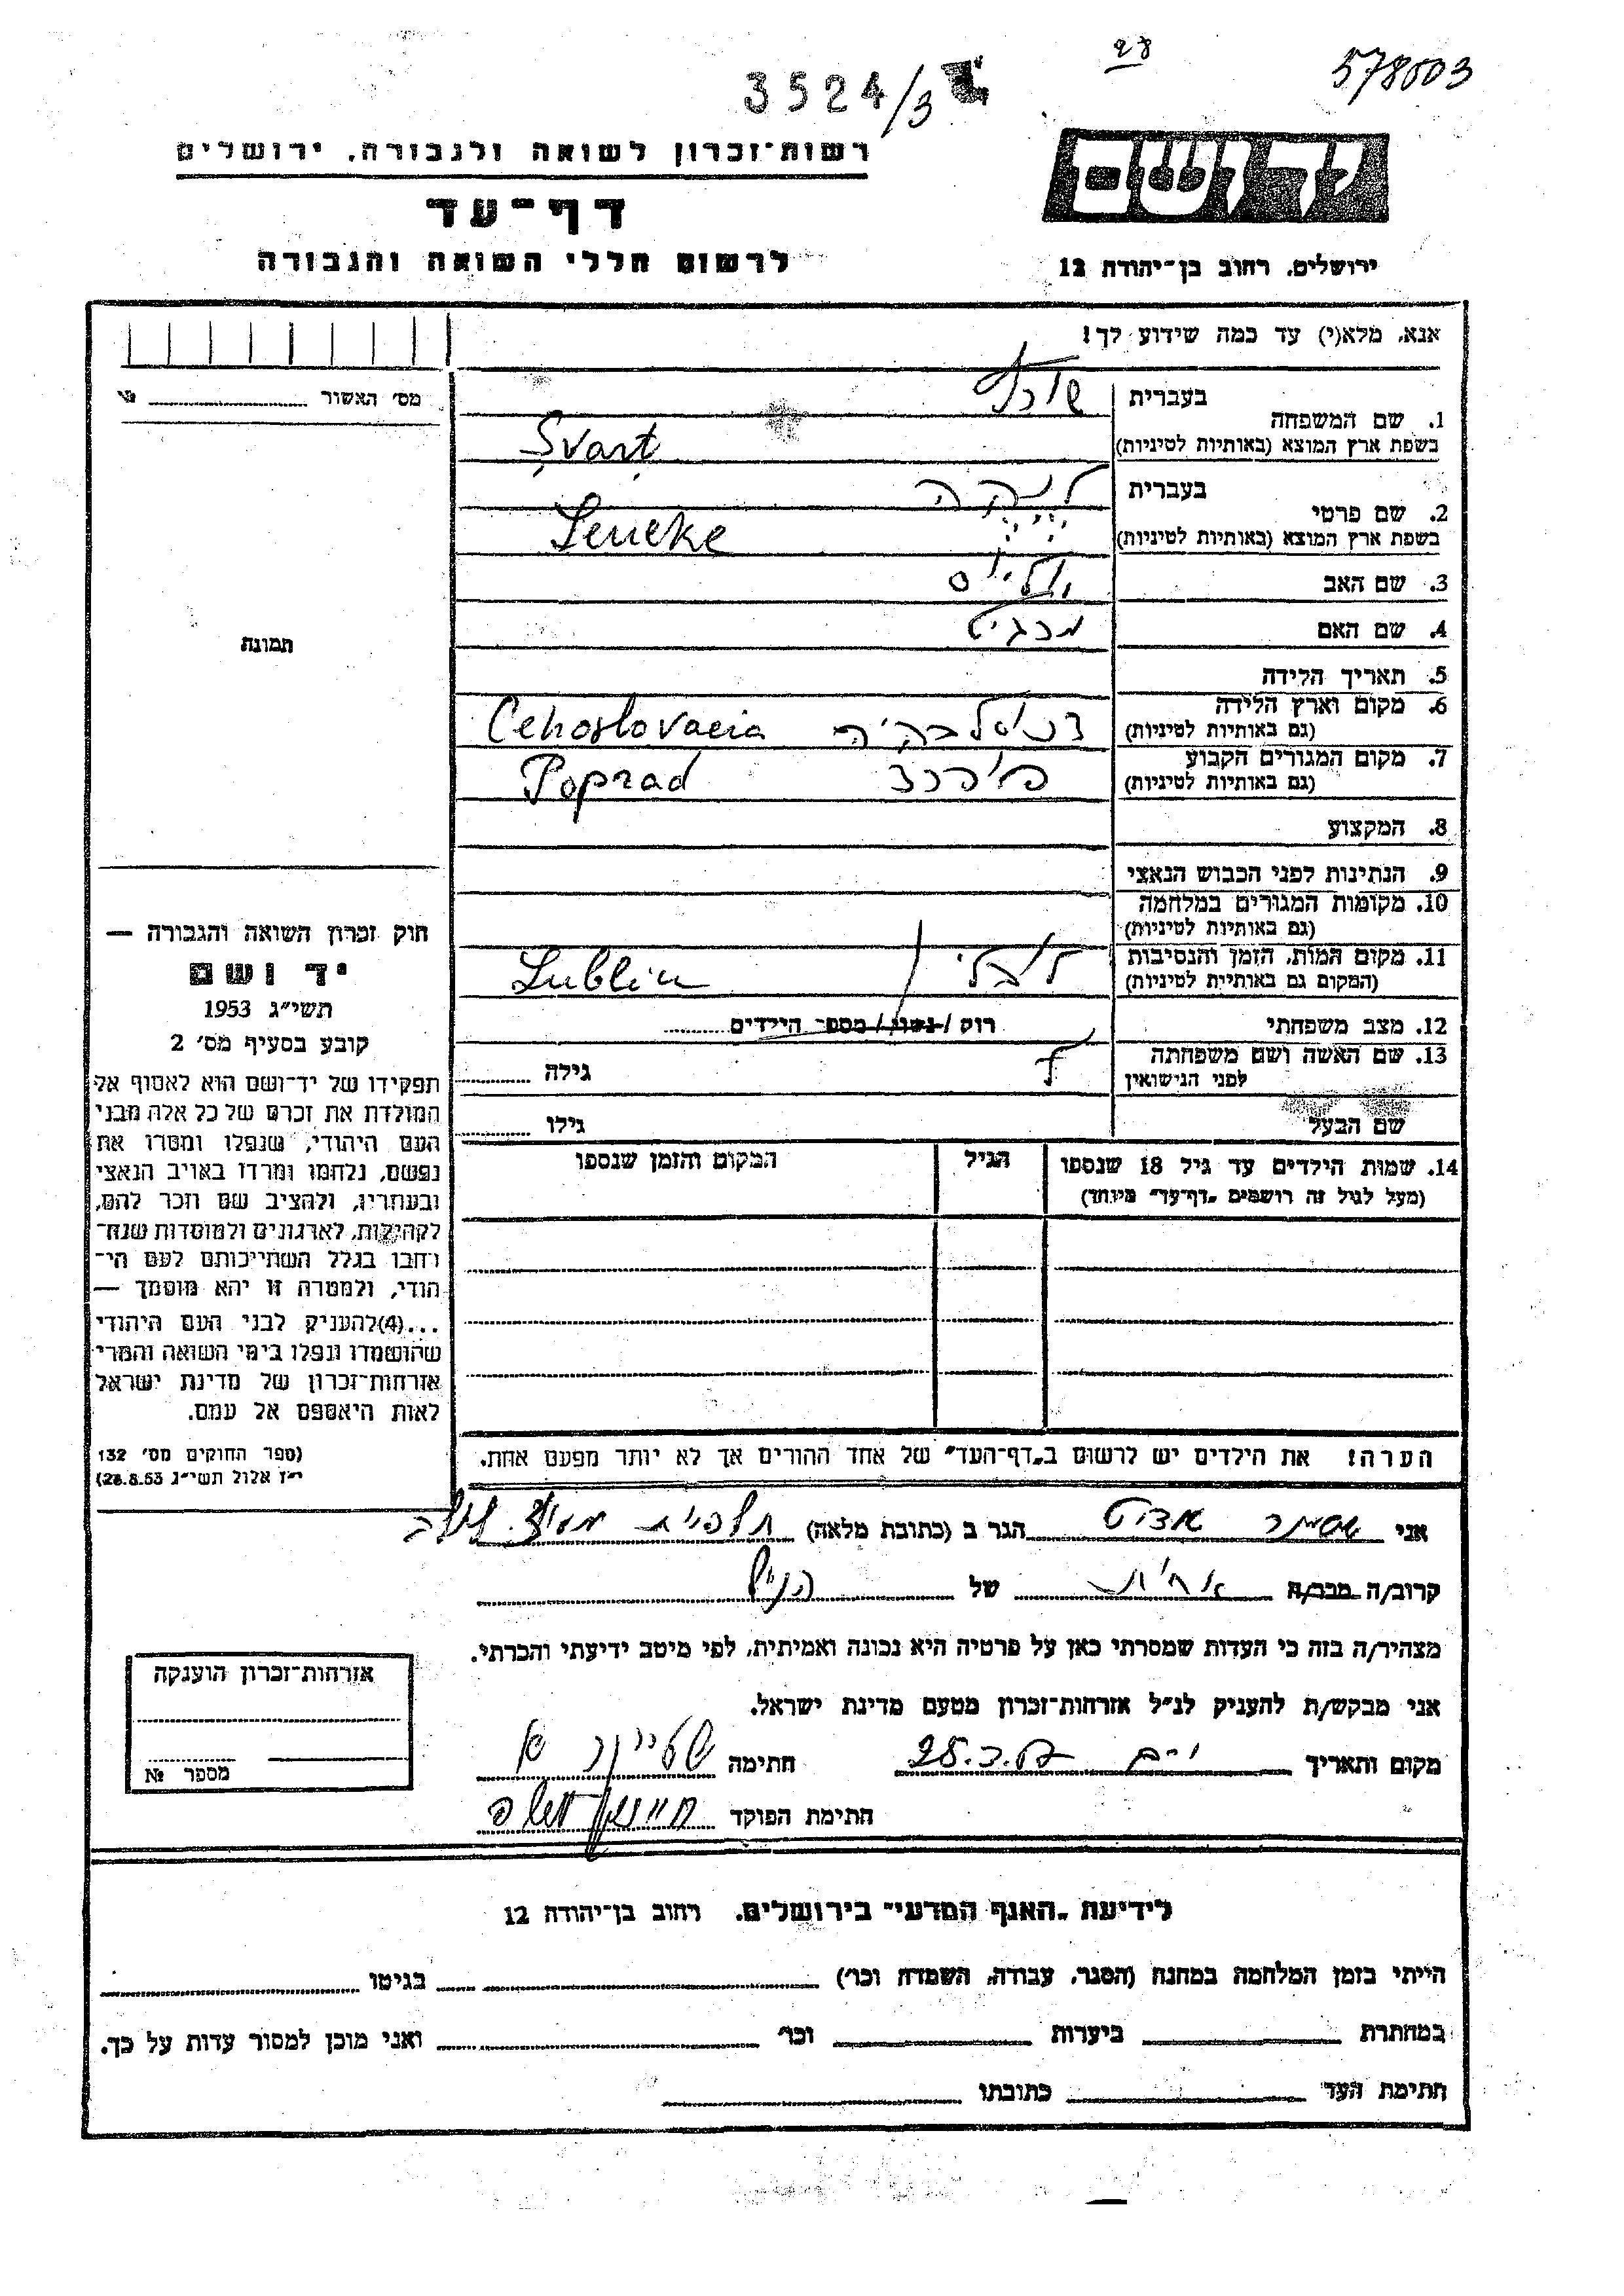 28
578003
3524/3
רשות־זכרון לשואה ולגבורה, ירושלים
יד ושם
דף־עד
לרשום חללי השואה והגבורה
ירושלים, רחוב בן־יהודה 12
אנא, מלא(י) עד כמה שידוע לך!
מס׳ האשור № 
1. שם המשפחה
בעברית
בשפת ארץ המוצא (באותיות לטיניות)
Švart
2. שם פרטי
בעברית
בשפת ארץ המוצא (באותיות לטיניות)
Leneke
3. שם האב
4. שם האם מרגיט
תמונה
5. תאריך הלידה
6. מקום וארץ הלידה
(גם באותיות לטיניות)
Cehoslovacia
7. מקום המגורים הקבוע
(גם באותיות לטיניות)
פופרד Poprad
8. המקצוע
9. הנתינות לפני הכבוש הנאצי
10. מקומות המגורים במלחמה
(גם באותיות לטיניות)
11. מקום המות, הזמן והנסיבות
(המקום גם באותיות לטיניות)
לובלין Lublin
12. מצב משפחתי רוק / נשוי / מספר הילדים
13. שם האשה ושם משפחתה
לפני הנישואין
גילה
שם הבעל גילו
14. שמות הילדים עד גיל 18 שנספו
(מעל לגיל זה רושמים „דף־עד״ מיוחד)
הגיל
המקום והזמן שנספו
הערה! את הילדים יש לרשום ב„דף־העד״ של אחד ההורים אך לא יותר מפעם אחת.
חוק זכרון השואה והגבורה —
יד ושם
תשי״ג 1953
קובע בסעיף מס׳ 2
תפקידו של יד־ושם הוא לאסוף אל
המולדת את זכרם של כל אלה מבני
העם היהודי, שנפלו ומסרו את
נפשם, נלחמו ומרדו באויב הנאצי
ובעוזריו, ולהציב שם וזכר להם,
לקהילות, לארגונים ולמוסדות שנח־
רבו בגלל השתייכותם לעם הי־
הודי, ולמטרה זו יהא מוסמך —
...(4)להעניק לבני העם היהודי
שהושמדו ונפלו בימי השואה והמרי
אזרחות־זכרון של מדינת ישראל
לאות היאספם אל עמם.
(ספר החוקים מס׳ 132
י״ז אלול תשי״ג 28.8.53)
אני אדיט הגר ב (כתובת מלאה) תלפיות
קרוב/ה מכר/ה אחות של הנ״ל
מצהיר/ה בזה כי העדות שמסרתי כאן על פרטיה היא נכונה ואמיתית, לפי מיטב ידיעתי והכרתי.
אני מבקש/ת להעניק לנ״ל אזרחות־זכרון מטעם מדינת ישראל.
מקום ותאריך חתימה
חתימת הפוקד
אזרחות־זכרון הוענקה
מספר №
לידיעת „האגף המדעי״ בירושלים, רחוב בן־יהודה 12
הייתי בזמן המלחמה במחנה (הסגר, עבודה, השמדה וכו׳) בגיטו
במחתרת ביערות וכו׳ ואני מוכן למסור עדות על כך.
חתימת העד כתובתו